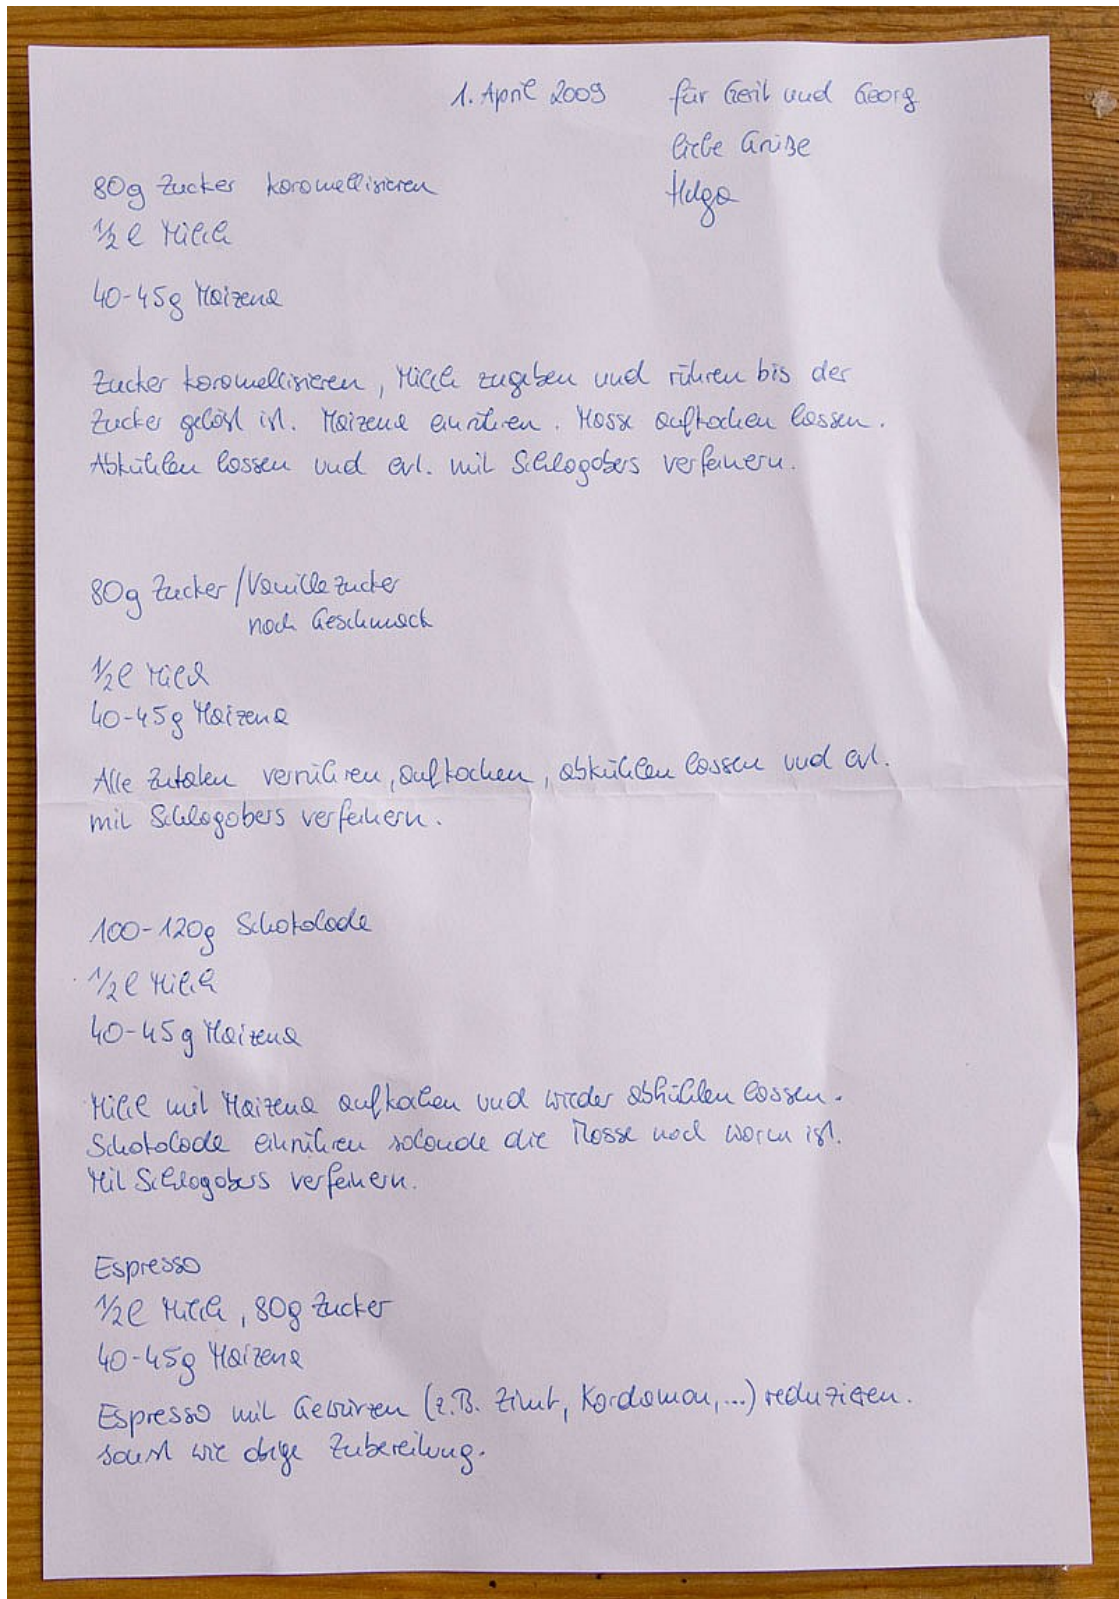 1. April 2009
für Gerit und Georg
liebe Grüße
Helga
80g Zucker karamellisieren
1/2 l Milch
40-45g Maizena
Zucker karamellisieren, Milch zugeben und rühren bis der
Zucker gelöst ist. Maizena einrühren. Masse aufkochen lassen.
Abkühlen lassen und evl. mit Schlagobers verfeinern.
80g Zucker/Vanillezucker
nach Geschmack
1/2 l Milch
40-45g Maizena
Alle Zutaten verrühren, aufkochen, abkühlen lassen und evl.
mit Schlagobers verfeinern.
100-120g Schokolade
1/2 l Milch
40-45g Maizena
Milch mit Maizena aufkochen und wieder abkühlen lassen.
Schokolade einrühren solande die Masse noch warm ist.
Mit Schlagobers verfeinern.
Espresso
1/2 l Milch, 80g Zucker
40-45g Maizena
Espresso mit Gewürzen (z.B. Zimt, Kardamon,...) reduzieren.
sonst wie obige Zubereitung.